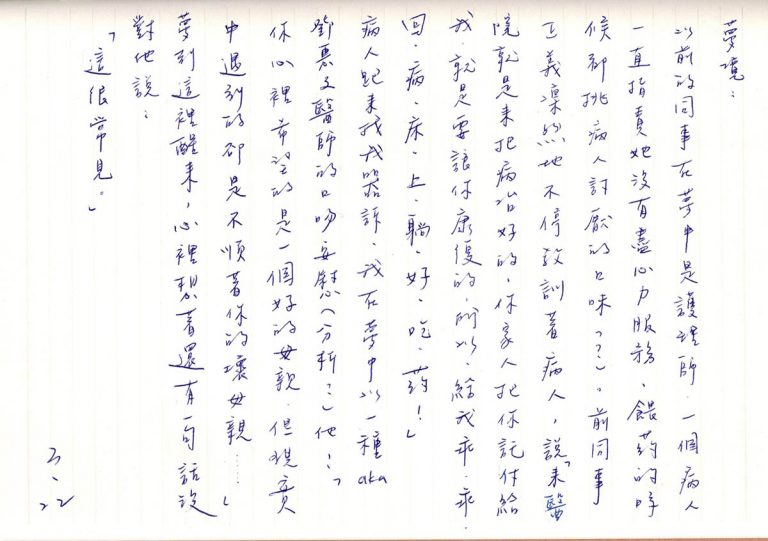 夢境：
以前的同事在夢中是護理師，一個病人
一直指責她沒有盡心力服務、餵药的時
候都挑病人討厭的口味（？）。前同事
正義凜然地不停教訓著病人，說「來醫
院就是來把病治好的，你家人把你託付給
我，就是要讓你康復的，所以，給我乖、乖、
回、病、床、上、躺、好、吃、药！」
病人起來找我哭訴，我在夢中以一種aka
鄧惠文醫師的口吻安慰（分析？）他：「
你心裡希望的是一個好的母親，但現實
中遇到的卻是不順著你的壞母親……」
夢到這裡醒來，心裡想著還有一句話沒
對他說：
「這很常見。」
3.22